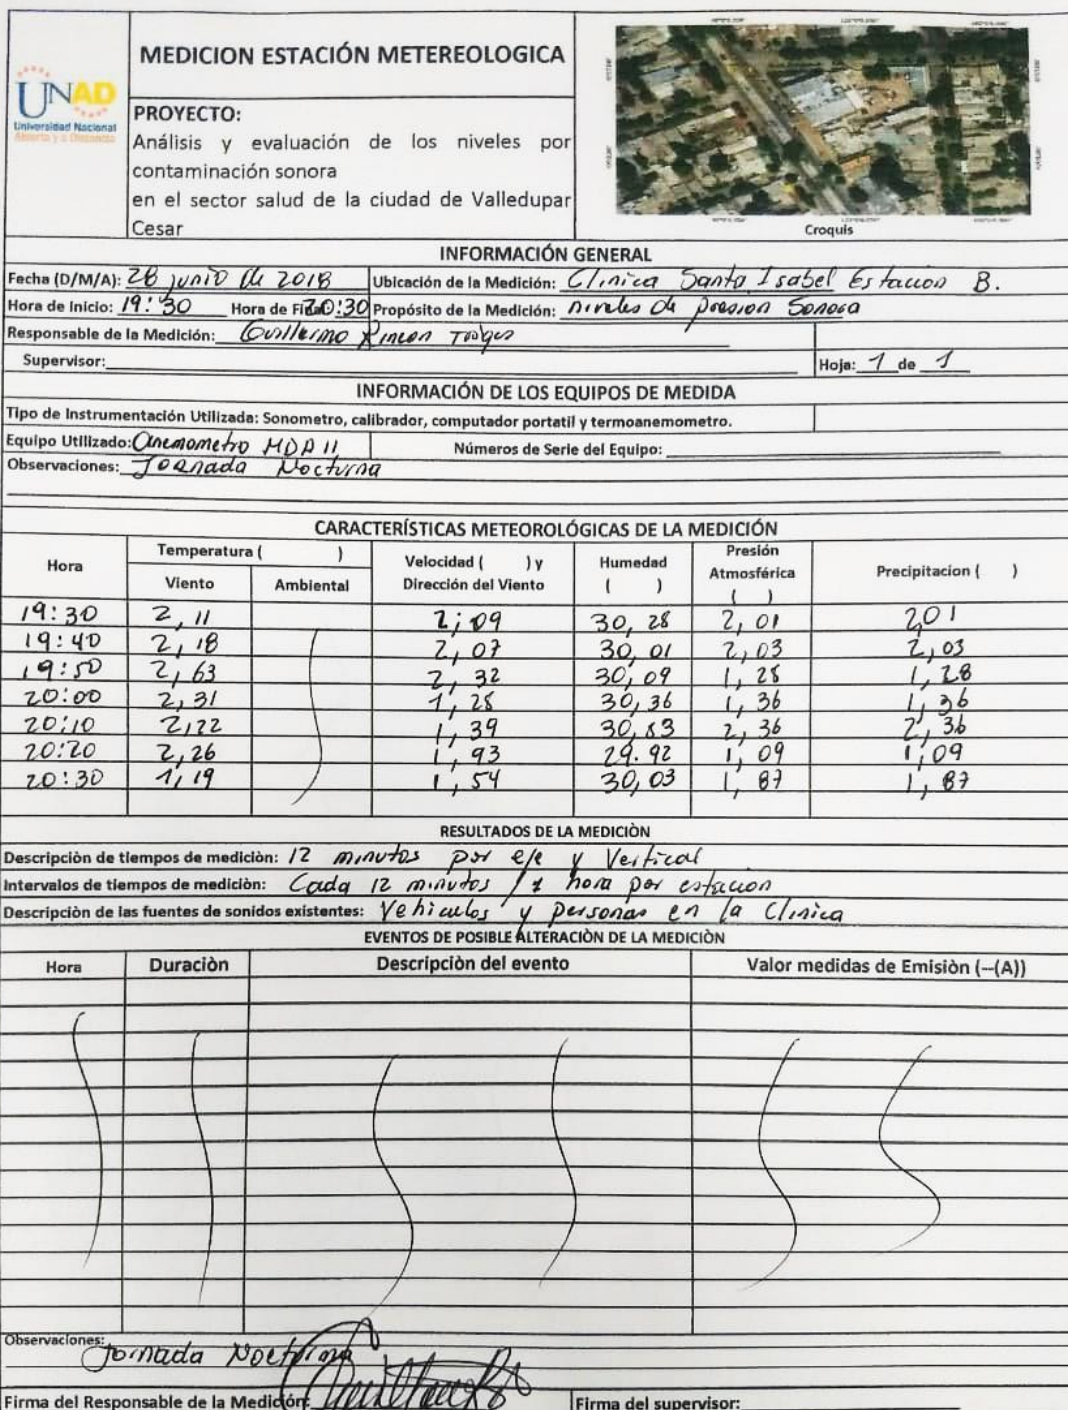 MEDICION ESTACIÓN METEREOLOGICA
UNAD
Universidad Nacional
Abierta y a Distancia
PROYECTO:
Análisis y evaluación de los niveles por
contaminación sonora
en el sector salud de la ciudad de Valledupar
Cesar
Croquis
INFORMACIÓN GENERAL
Fecha (D/M/A): 28 junio de 2018 Ubicación de la Medición: Clinica Santa Isabel Estacion B.
Hora de Inicio: 19:30 Hora de Final: 20:30 Propósito de la Medición: niveles de presion Sonora
Responsable de la Medición: Guillermo Rincon
Supervisor: Hoja: 1 de 1
INFORMACIÓN DE LOS EQUIPOS DE MEDIDA
Tipo de Instrumentación Utilizada: Sonometro, calibrador, computador portatil y termoanemometro.
Equipo Utilizado: Anemometro MDA 11 Números de Serie del Equipo:
Observaciones: Jornada Nocturna
CARACTERÍSTICAS METEOROLÓGICAS DE LA MEDICIÓN
Hora Temperatura ( ) Velocidad ( ) y Dirección del Viento Humedad ( ) Presión Atmosférica ( ) Precipitacion ( )
Viento Ambiental
19:30 2,11 2,09 30,28 2,01 2,01
19:40 2,18 2,07 30,01 2,03 2,03
19:50 2,63 2,32 30,09 1,28 1,28
20:00 2,31 1,28 30,36 1,36 1,36
20:10 2,22 1,39 30,83 2,36 2,36
20:20 2,26 1,93 29.92 1,09 1,09
20:30 1,19 1,54 30,03 1,87 1,87
RESULTADOS DE LA MEDICIÒN
Descripciòn de tiempos de mediciòn: 12 minutos por eje y Vertical
Intervalos de tiempos de mediciòn: Cada 12 minutos / 1 hora por estacion
Descripciòn de las fuentes de sonidos existentes: Vehiculos y personas en la Clinica
EVENTOS DE POSIBLE ALTERACIÒN DE LA MEDICIÒN
Hora Duraciòn Descripciòn del evento Valor medidas de Emisiòn (--(A))
Observaciones: Jornada Nocturna
Firma del Responsable de la Medición: Firma del supervisor: